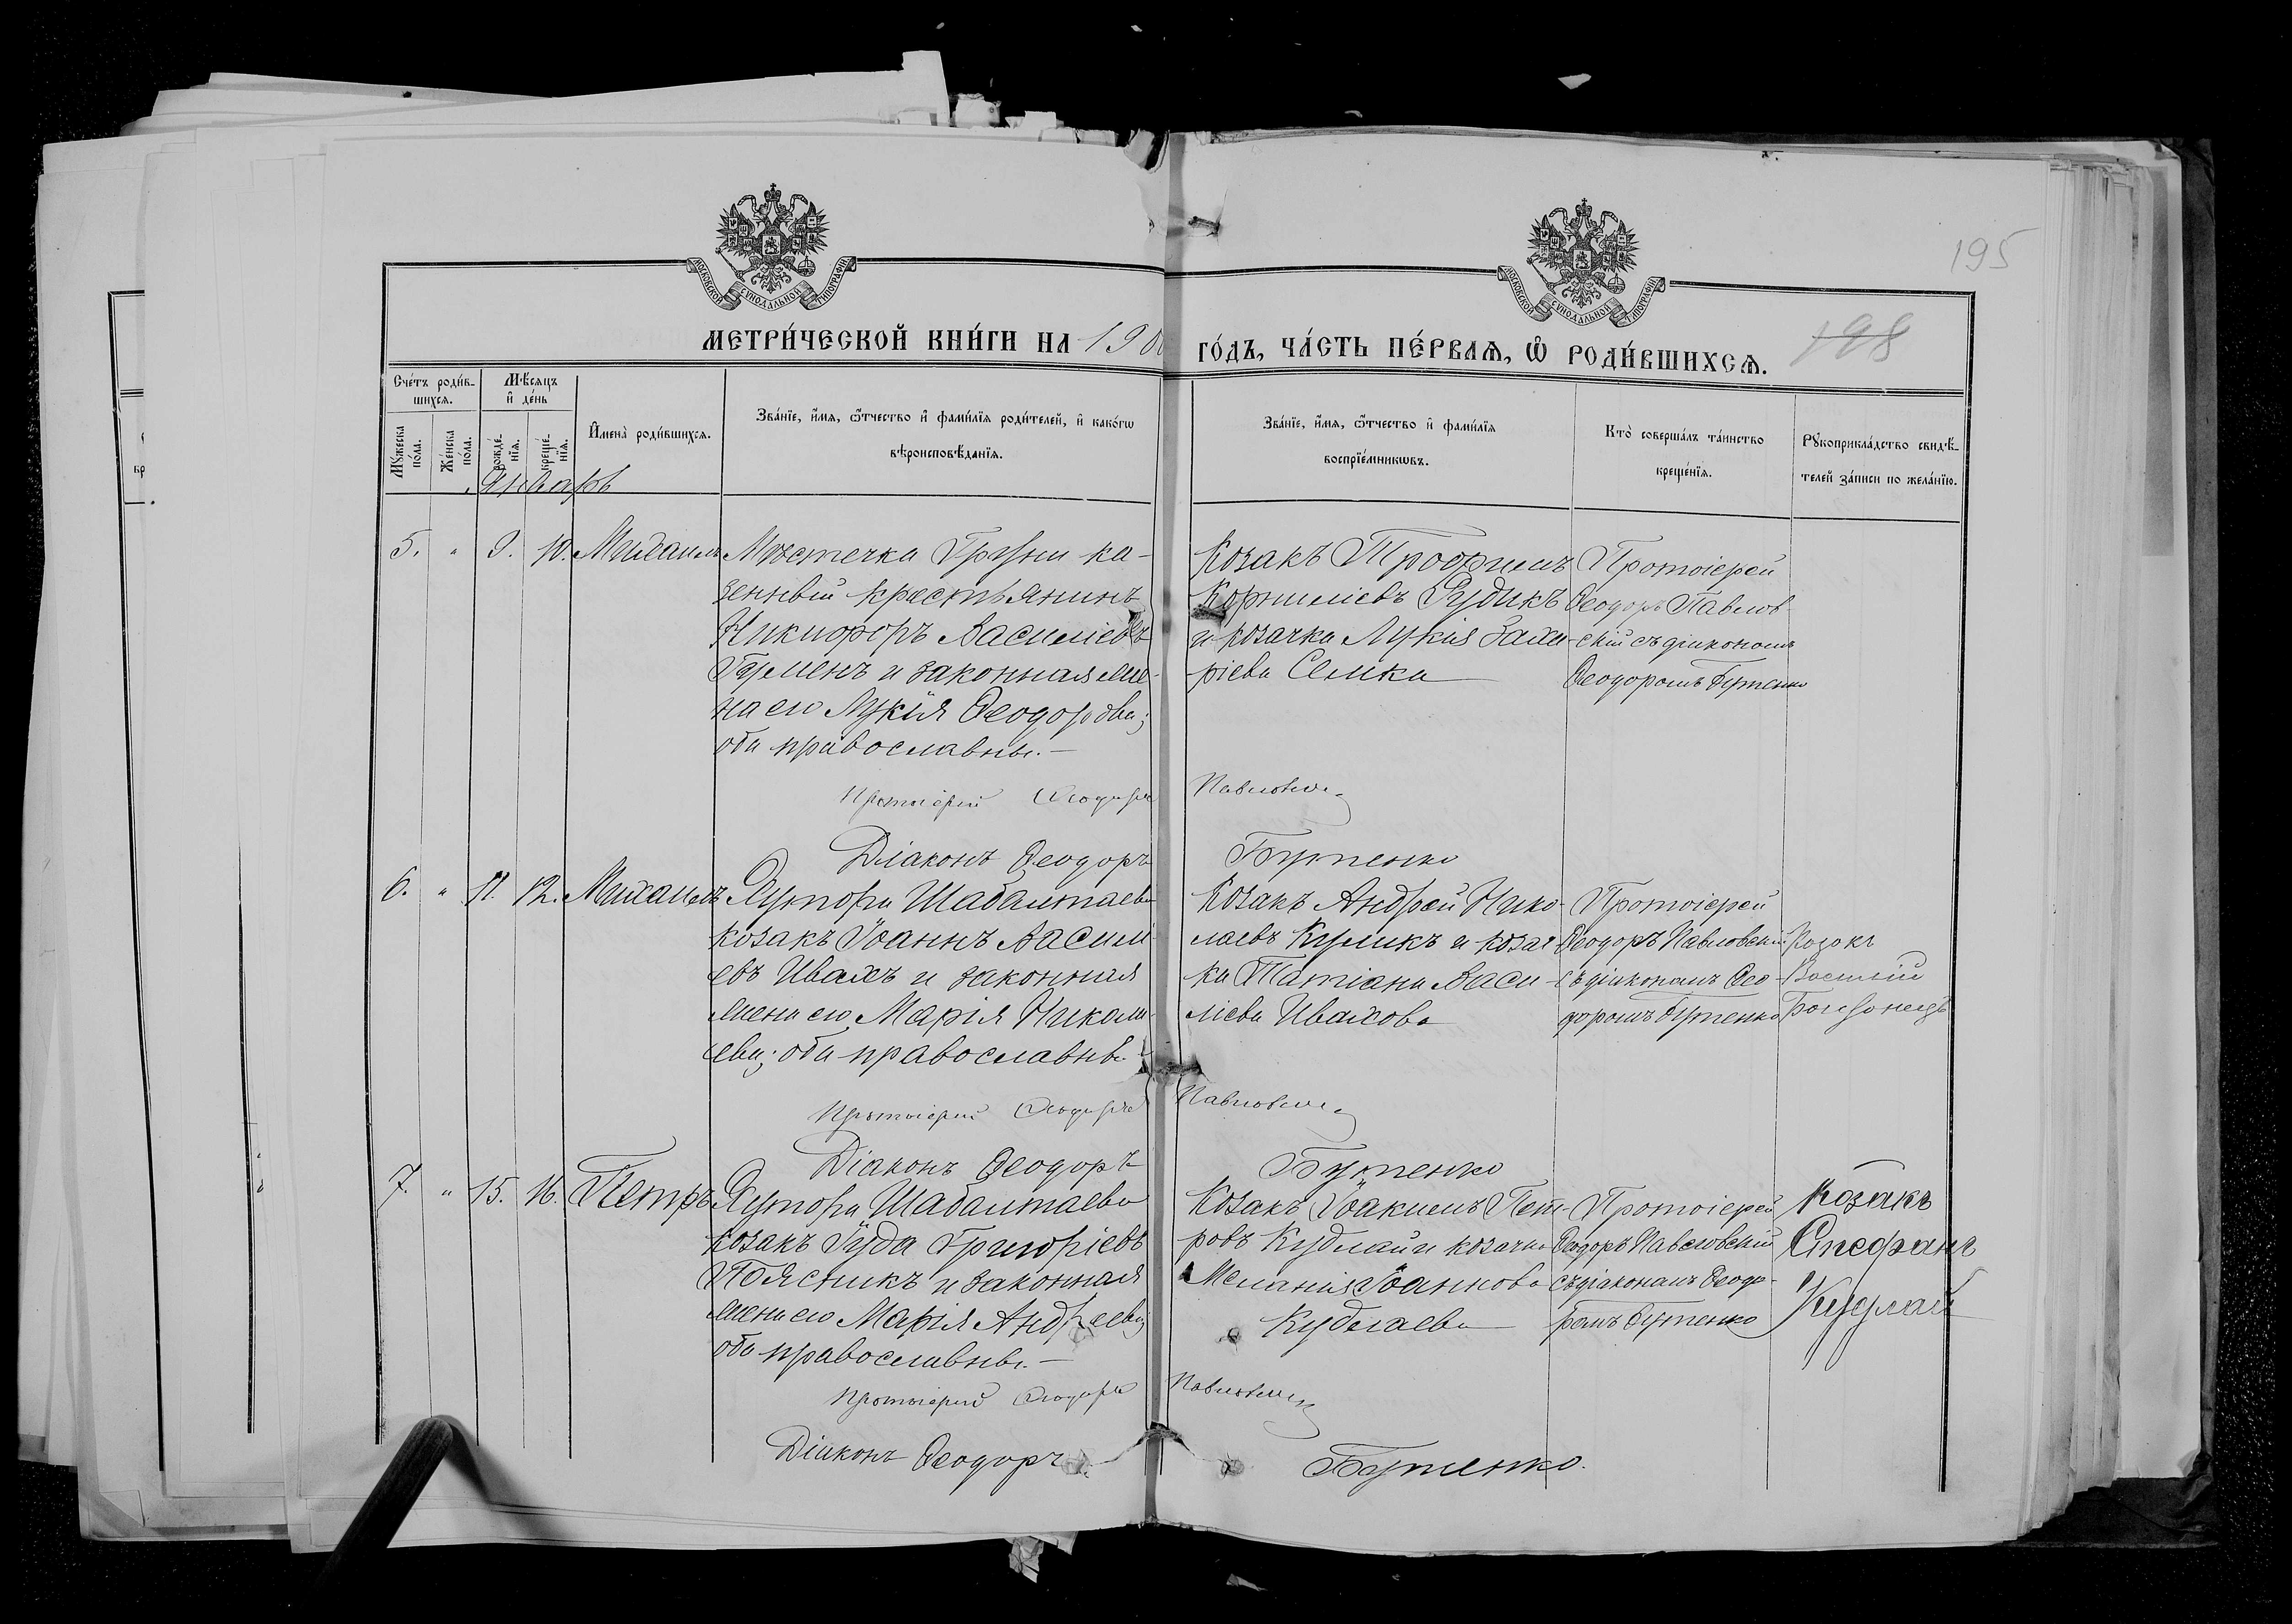 195
МОСКОВСКОЙ СѴНОДАЛЬНОЙ ТИПОГРАФІИ
МОСКОВСКОЙ СѴНОДАЛЬНОЙ ТИПОГРАФІИ
МЕТРИ́ЧЕСКОЙ КНИ́ГИ НА 190
ГО́ДЪ, ЧА́СТЬ ПЕ́РВАѦ, Ѡ҆ РОДИ́ВШИХСѦ.
198
Сче́тъ роди́в-
шихсѧ.
Мѣ́сѧцъ
и҆ де́нь
Мꙋ́жеска
по́ла.
Же́нска
по́ла.
рожде́-
нїѧ.
креще́-
нїѧ.
И҆мена̀ роди́вшихсѧ.
Зва́нїе, и҆́мѧ, ѻ҆́тчество и҆ фами́лїѧ роди́телей, и҆ како́гѡ
вѣроисповѣ́данїѧ.
Зва́нїе, и҆́мѧ, ѻ҆́тчество и҆ фами́лїѧ
воспрїе́мникѡвъ.
Кто̀ соверша́лъ та́инство
креще́нїѧ.
Рꙋкоприкла́дство свидѣ́-
телей за́писи по жела́нїю.
Январь
5. " 9. 10. Михаилъ
Мѣстечка Груни ка-
зенный крестьянинъ
Никифоръ Василіевъ
и законная же-
на его Лукія Ѳеодорова;
оба православны.—
Козакъ Трофимъ
Корниліевъ Рудикъ
и козачка Лукія Заха-
ріева Семка
Протоіерей
Ѳеодоръ Павлов-
скій съ діакономъ
Ѳеодоромъ Бутенко
Протоіерей Ѳеодоръ Павловскій
Діаконъ Ѳеодоръ Бутенко
6. " 11. 12. Михаилъ
Хутора Шабалтаева
козакъ Іоаннъ Васили-
евъ Ивахъ и законная
жена его Марія Никола-
ева; оба православны.—
Козакъ Андрей Нико-
лаевъ Куликъ и козач-
ка Татіана Васи-
ліева Ивахова
Протоіерей
Ѳеодоръ Павловскій
съ діакономъ Ѳео-
доромъ Бутенко
Козакъ
Василій
Протоіерей Ѳеодоръ Павловскій
Діаконъ Ѳеодоръ Бутенко
7. " 15. 16. Петръ
Хутора Шабалтаева
козакъ Іуда Григоріевъ
Поясникъ и законная
жена его Марія Андреева;
оба православны.—
Козакъ Іоакимъ Пет-
ровъ Кудлай и козачка
Меланія Іоаннова
Кудлаева
Протоіерей
Ѳеодоръ Павловскій
съ діакономъ Ѳеодо-
ромъ Бутенко
Козакъ
Стефанъ
Кудлай
Протоіерей Ѳеодоръ Павловскій
Діаконъ Ѳеодоръ Бутенко.